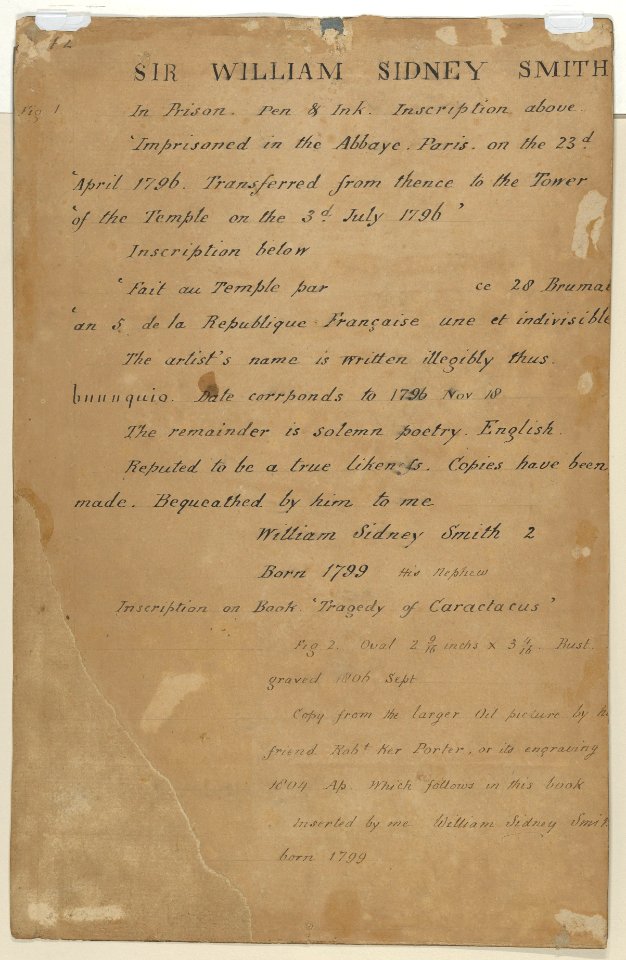 SIR WILLIAM SIDNEY SMITH
Fig 1 In Prison. Pen & Ink. Inscription above.
'Imprisoned in the Abbaye. Paris. on the 23d
'April 1796. Transferred from thence to the Tower
'of the Temple on the 3d July 1796'
Inscription below
'Fait au Temple par ce 28 Brumai
'an 5 de la Republique Française une et indivisible
The artist's name is written illegibly thus.
bnunquio. Date corrponds to 1796 Nov 18
The remainder is solemn poetry. English.
Reputed to be a true likeness. Copies have been
made. Bequeathed by him to me
William Sidney Smith 2
Born 1799 His Nephew
Inscription on Book. 'Tragedy of Caractacus'
Fig 2. Oval 2 9/16 inchs x 3 4/16. Bust.
graved 1806 Sept
Copy from the larger Oil picture by h
friend Robt Ker Porter, or its engraving
1804 Ap. Which follows in this book
Inserted by me William Sidney Smit
born 1799